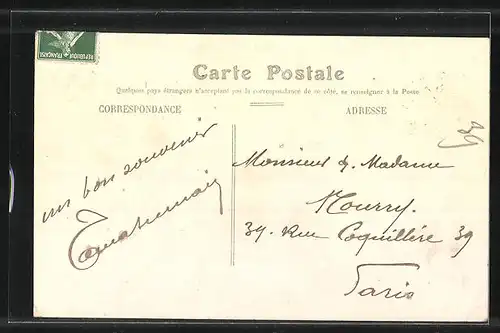 RÉPUBLIQUE FRANÇAISE
Carte Postale
Quelques pays étrangers n'acceptant pas la correspondance de ce côté, se renseigner à la Poste
CORRESPONDANCE
un bon souvenir
ADRESSE
Monsieur & Madame
Mourry.
39. Rue Coquillère 39
Paris